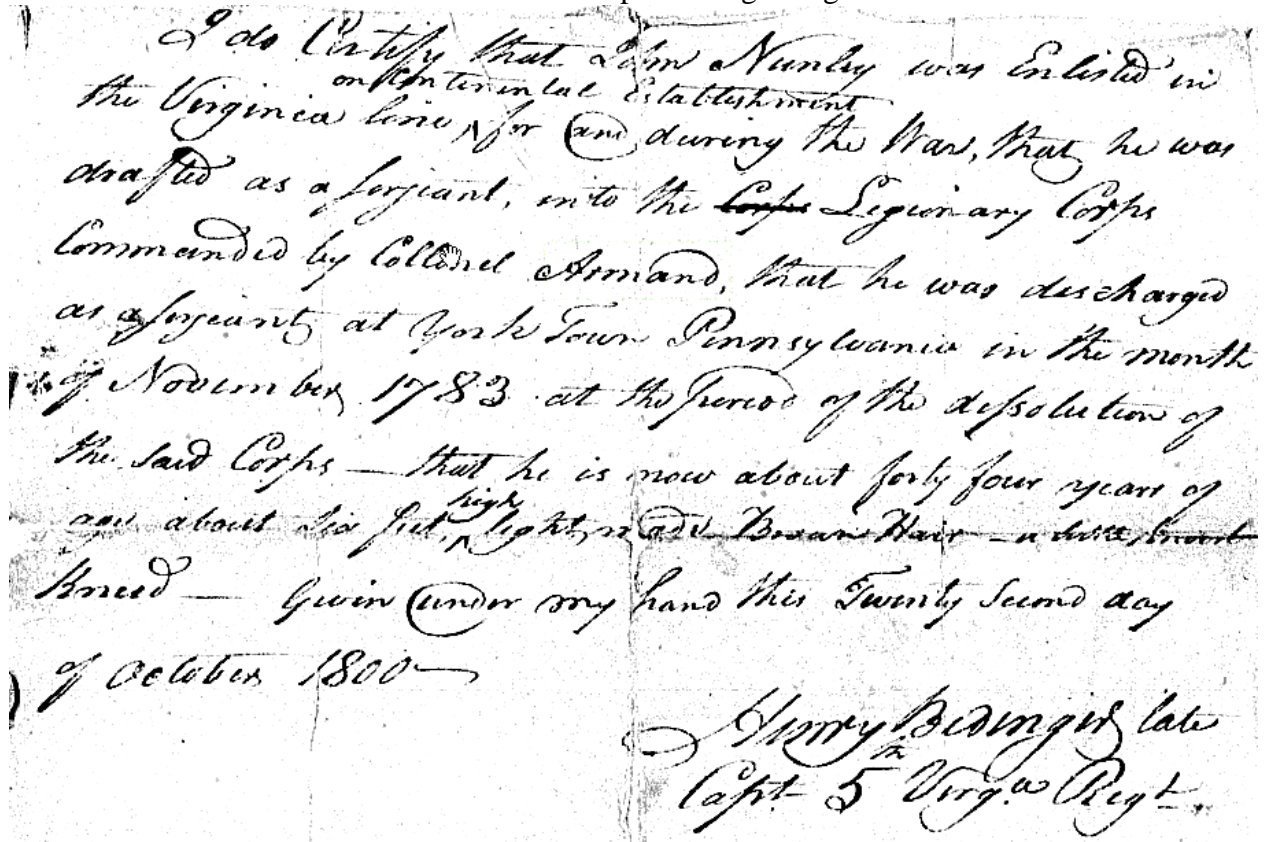 I do Certify that John Nunley was Enlisted in
on Continental Establishment
the Virginia line, ^ for and during the War, that he was
drafted as a serjeant, into the Corps Legionary Corps
Commanded by Collonel Armand, that he was discharged
as a serjeant at York Town Pennsylvania in the month
of November 1783 at the period of the dissolution of
the said Corps — that he is now about forty four years of
high
age about six feet, ^ light made Brown Hair — a little
Kneed — Given under my hand this Twenty Second day
of October 1800 —
Henry Bedinger late
Capt. 5th Virga. Regt.